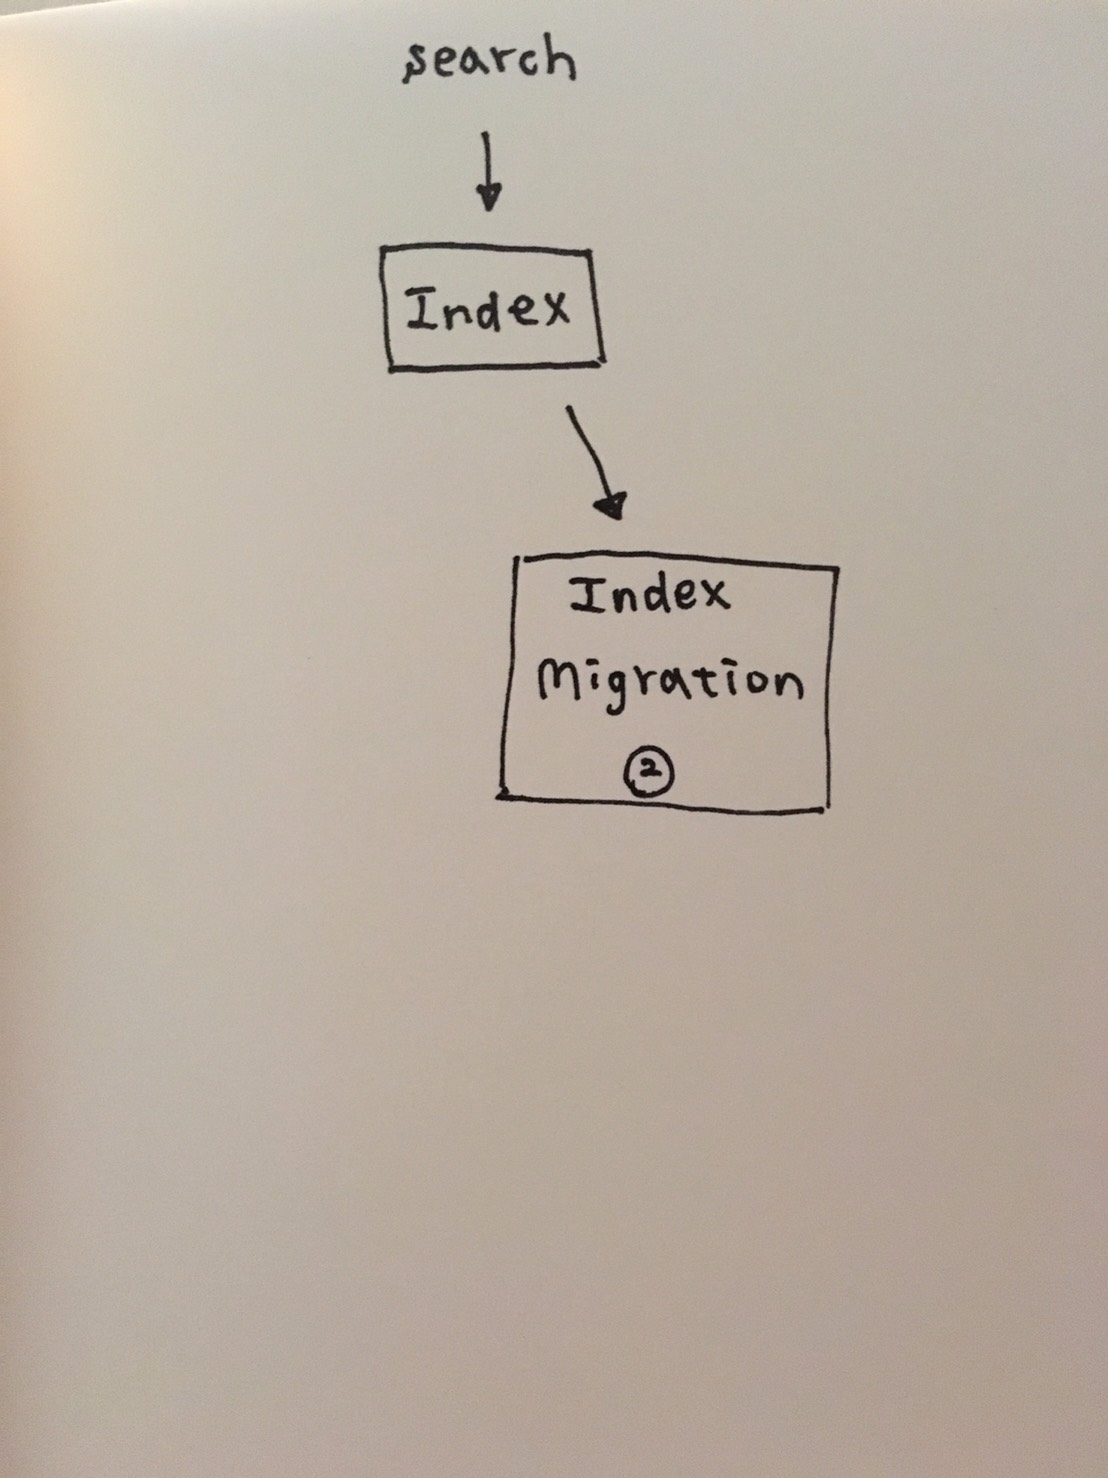 search
Index
Index
Migration
②